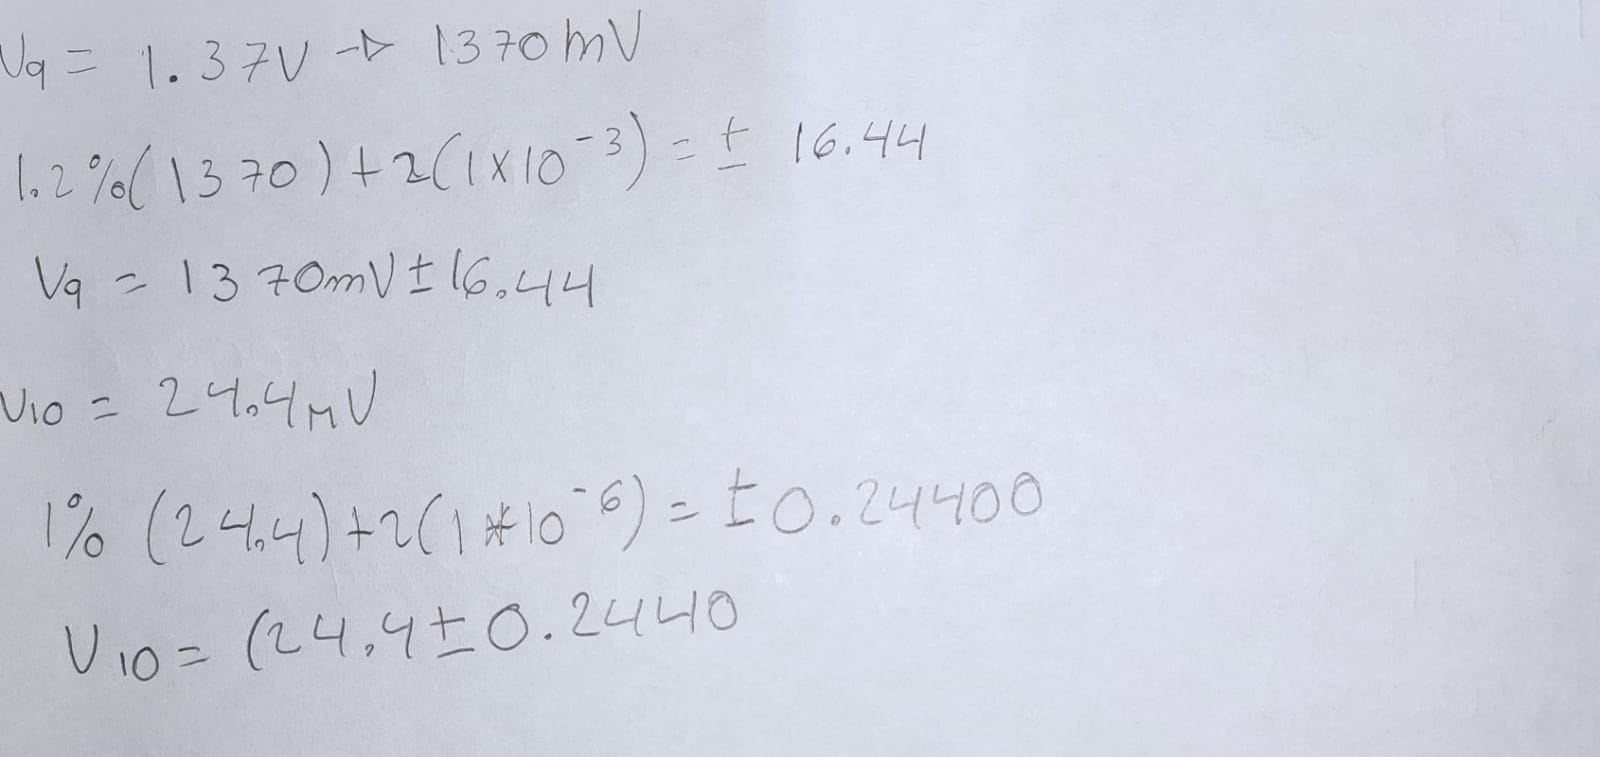 V9 = 1.37V → 1370mV
1.2%(1370)+2(1x10⁻³)=± 16.44
V9 = 1370mV±16.44
V10 = 24.4mV
1% (24.4)+2(1*10⁻⁶)=±0.24400
V10= (24.4±0.2440